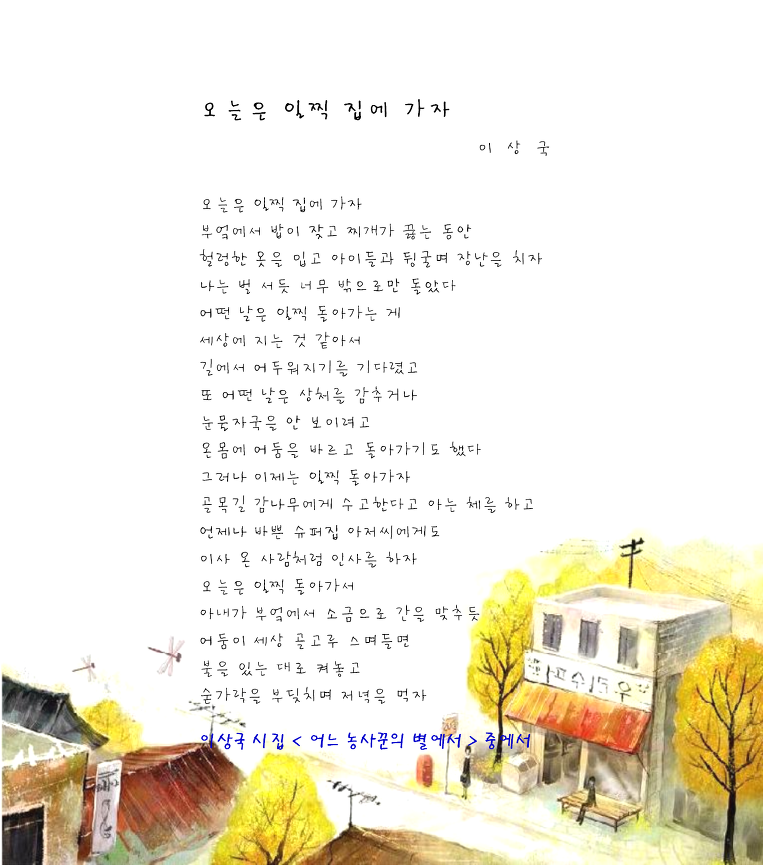 오늘은 일찍 집에 가자
이 상 국
오늘은 일찍 집에 가자
부엌에서 밥이 잦고 찌개가 끓는 동안
헐렁한 옷을 입고 아이들과 뒹굴며 장난을 치자
나는 벌 서듯 너무 밖으로만 돌았다
어떤 날은 일찍 돌아가는 게
세상에 지는 것 같아서
길에서 어두워지기를 기다렸고
또 어떤 날은 상처를 감추거나
눈물자국을 안 보이려고
온몸에 어둠을 바르고 돌아가기도 했다
그러나 이제는 일찍 돌아가자
골목길 감나무에게 수고한다고 아는 체를 하고
언제나 바쁜 슈퍼집 아저씨에게도
이사 온 사람처럼 인사를 하자
오늘은 일찍 돌아가서
아내가 부엌에서 소금으로 간을 맞추듯
어둠이 세상 골고루 스며들면
불을 있는 대로 켜놓고
숟가락을 부딪치며 저녁을 먹자
이상국 시집 < 어느 농사꾼의 별에서 > 중에서